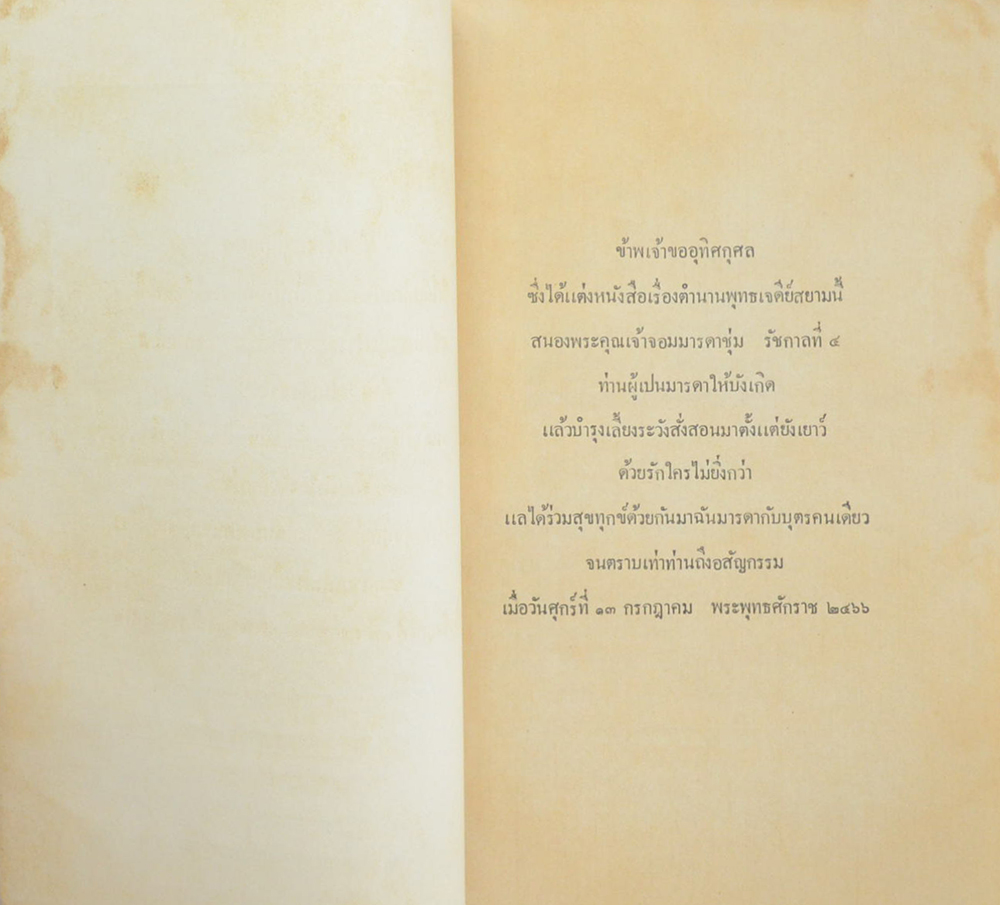 ข้าพเจ้าขออุทิศกุศล
ซึ่งได้แต่งหนังสือเรื่องตำนานพุทธเจดีย์สยามนี้
สนองพระคุณเจ้าจอมมารดาชุ่ม รัชกาลที่ ๔
ท่านผู้เปนมารดาให้บังเกิด
แล้วบำรุงเลี้ยงระวังสั่งสอนมาตั้งแต่ยังเยาว์
ด้วยรักใคร่ไม่ยิ่งกว่า
แลได้ร่วมสุขทุกข์ด้วยกันมาฉันมารดากับบุตรคนเดียว
จนตราบเท่าท่านถึงอสัญกรรม
เมื่อวันศุกร์ที่ ๑๓ กรกฎาคม พระพุทธศักราช ๒๔๖๖